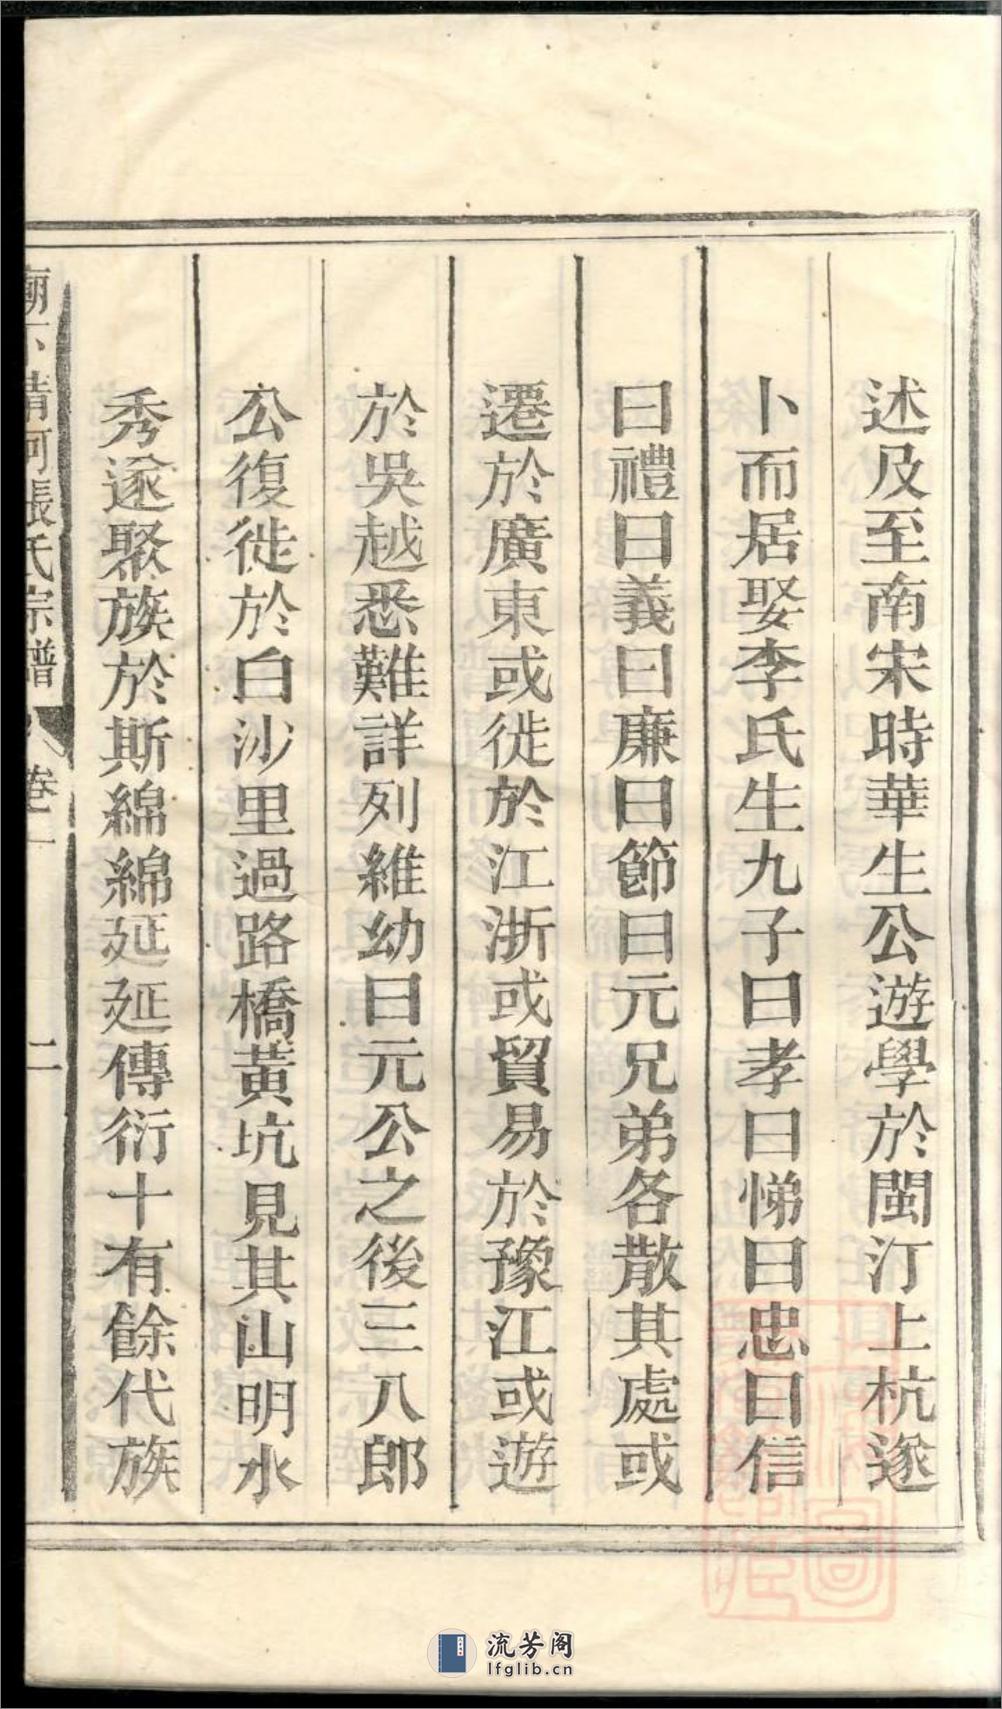 述及至南宋時華生公遊學於閩汀上杭遂
卜而居娶李氏生九子曰孝曰悌曰忠曰信
曰禮曰義曰廉曰節曰元兄弟各散其處或
遷於廣東或徙於江浙或貿易於豫江或遊
於吳越悉難詳列維幼曰元公之後三八郎
公復徙於白沙里過路橋黃坑見其山明水
秀遂聚族於斯綿綿延延傳衍十有餘代族
廟下清河張氏宗譜 卷一 二
流芳阁
lfglib.cn